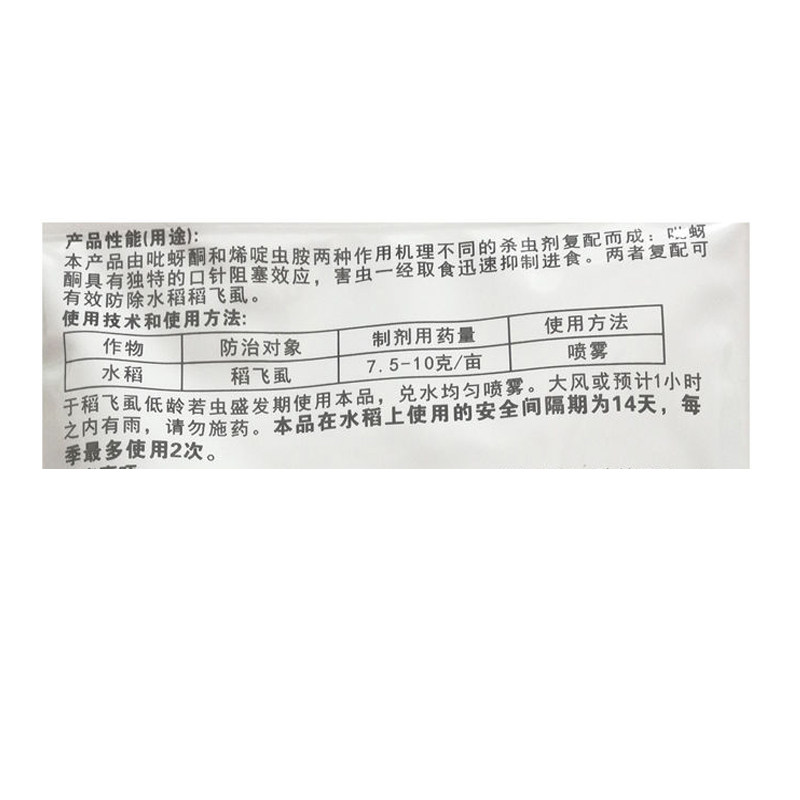 产品性能(用途):
本产品由吡蚜酮和烯啶虫胺两种作用机理不同的杀虫剂复配而成：吡蚜
酮具有独特的口针阻塞效应，害虫一经取食迅速抑制进食。两者复配可
有效防除水稻稻飞虱。
使用技术和使用方法:
作物 防治对象 制剂用药量 使用方法
水稻 稻飞虱 7.5-10克/亩 喷雾
于稻飞虱低龄若虫盛发期使用本品，兑水均匀喷雾。大风或预计1小时
之内有雨，请勿施药。本品在水稻上使用的安全间隔期为14天，每
季最多使用2次。